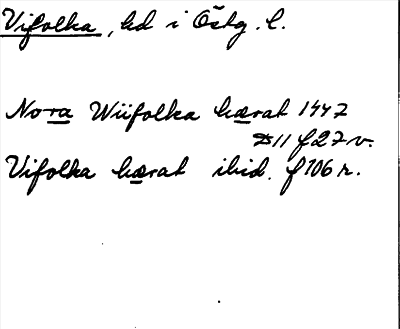 Vifolka, hd i Östg. l.
Nora Wiifolka hærat 1447
D 11 f 27 v.
Vifolka hærat ibid. f 106 r.